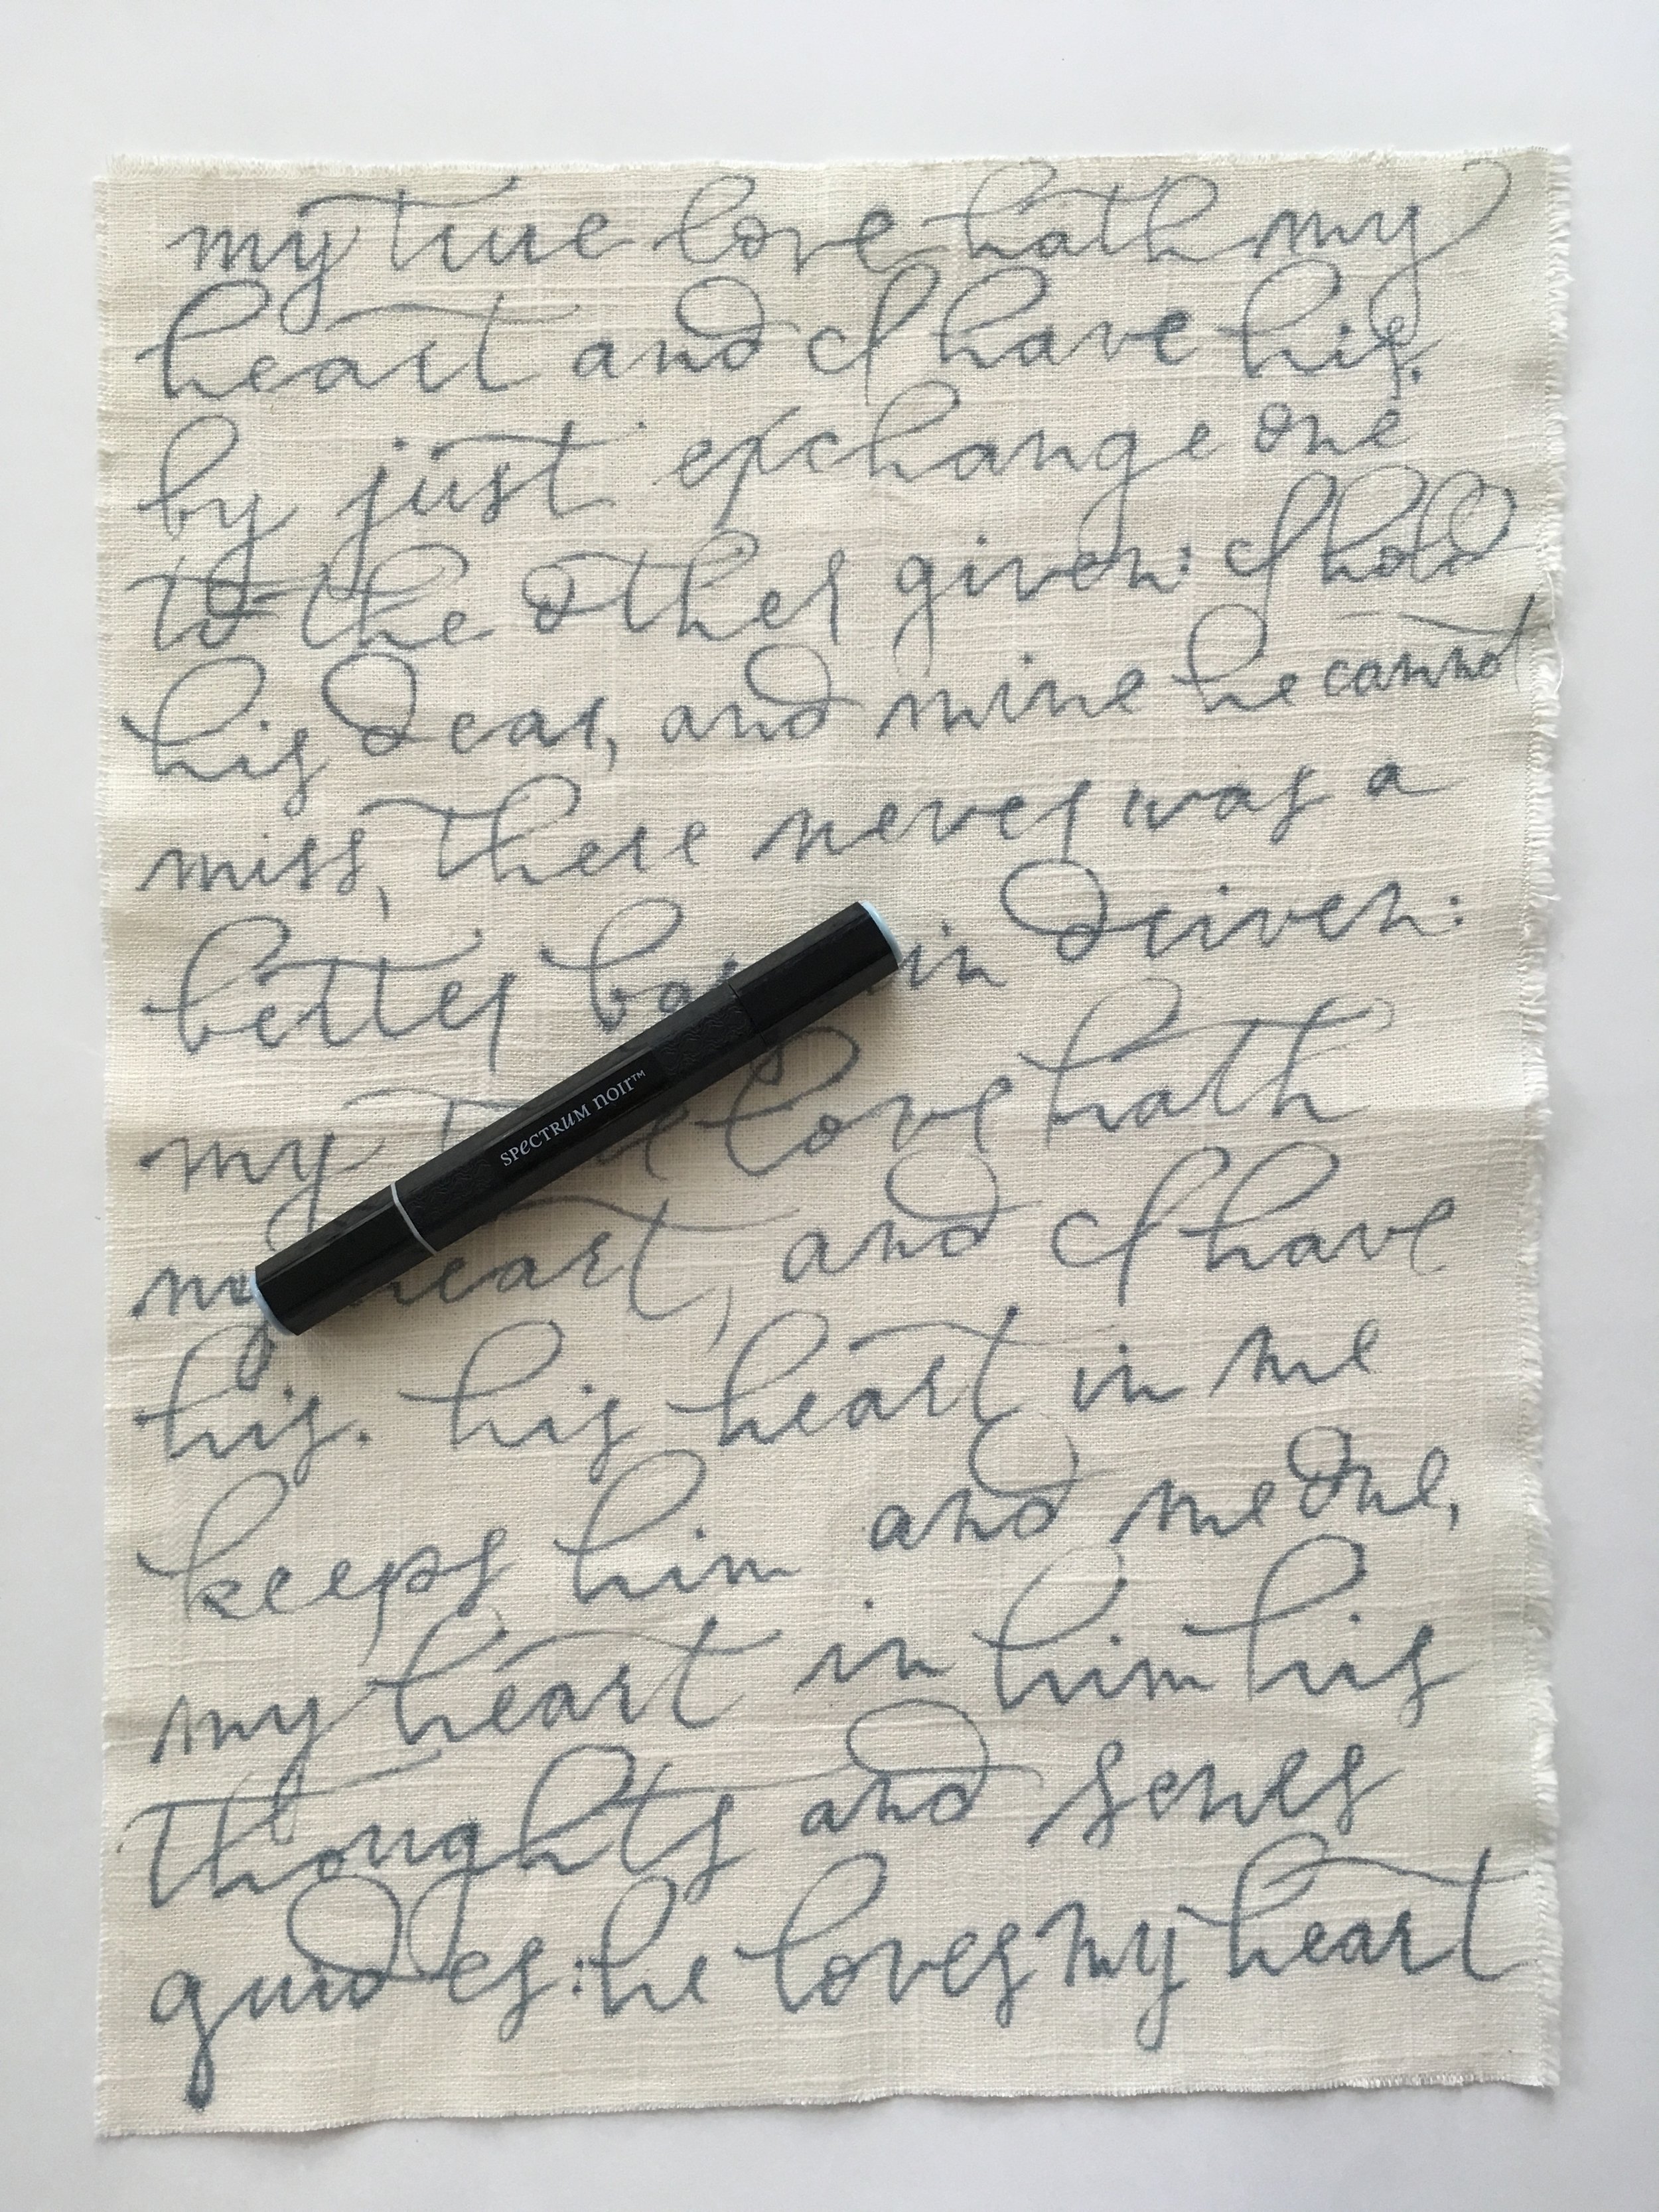 my true love hath my
heart and I have his.
by just exchange one
to the other given: I hold
his dear, and mine he cannot
miss, there never was a
better bargain driven:
my true love hath
my heart, and I have
his. his heart in me
keeps him and me one,
my heart in him his
thoughts and senses
guides: he loves my heart
SPECTRUM NOIR™